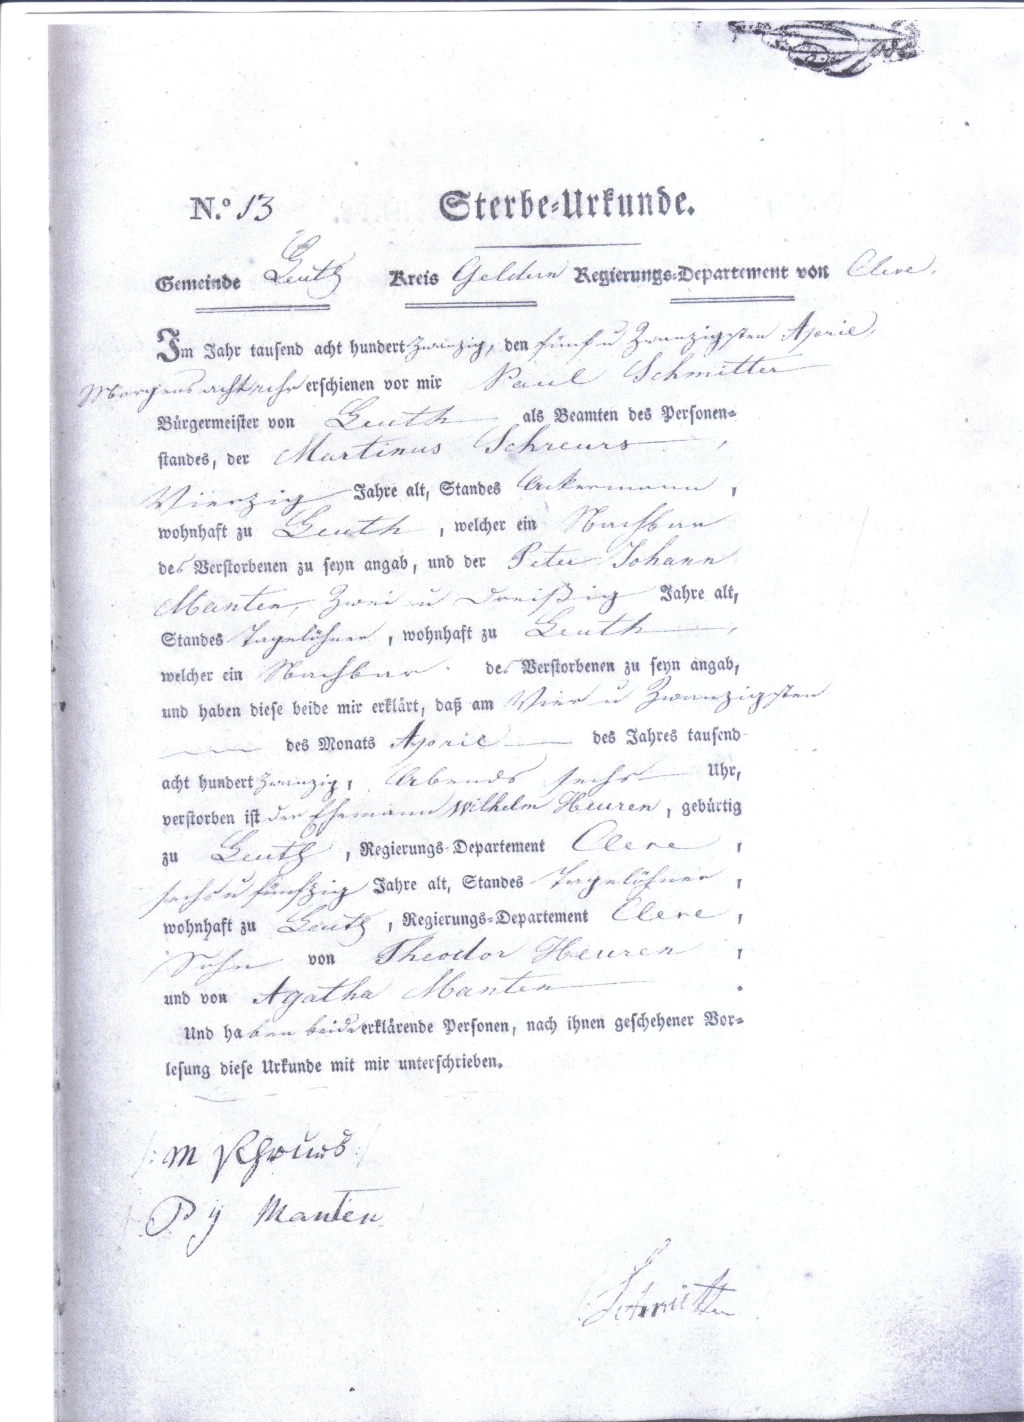 N.º 13 Sterbe-Urkunde.
Gemeinde Leuth Kreis Geldern Regierungs-Departement von Cleve.
Im Jahr tausend acht hundert zwanzig, den fünf u Zwanzigsten April,
Morgens acht uhr erschienen vor mir Paul Schmitter
Bürgermeister von Leuth als Beamten des Personen-
standes, der Martinus Schreurs,
Vierzig Jahre alt, Standes Ackermann,
wohnhaft zu Leuth, welcher ein Nachbar
des Verstorbenen zu seyn angab, und der Peter Johann
Manten, Zwei u Dreißig Jahre alt,
Standes Tagelöhner, wohnhaft zu Leuth,
welcher ein Nachbar des Verstorbenen zu seyn angab,
und haben diese beide mir erklärt, daß am Vier u Zwanzigsten
des Monats April des Jahres tausend
acht hundert zwanzig, Abends sechs Uhr,
verstorben ist der Ehemann Wilhelm Heuren, gebürtig
zu Leuth, Regierungs-Departement Cleve,
sechs u fünfzig Jahre alt, Standes Tagelöhner,
wohnhaft zu Leuth, Regierungs-Departement Cleve,
Sohn von Theodor Heuren,
und von Agatha Manten.
Und haben beide erklärende Personen, nach ihnen geschehener Vor-
lesung diese Urkunde mit mir unterschrieben.
M Schreurs
P J Manten
Schmitter